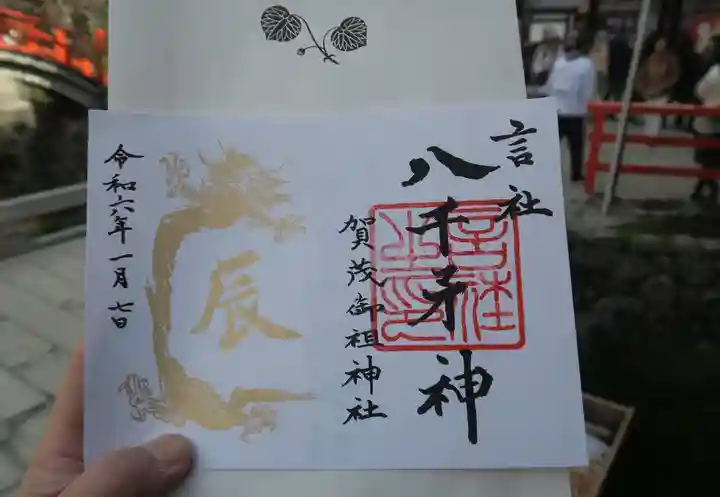 言社
八千矛神
言社之印
賀茂御祖神社
辰
令和六年一月七日